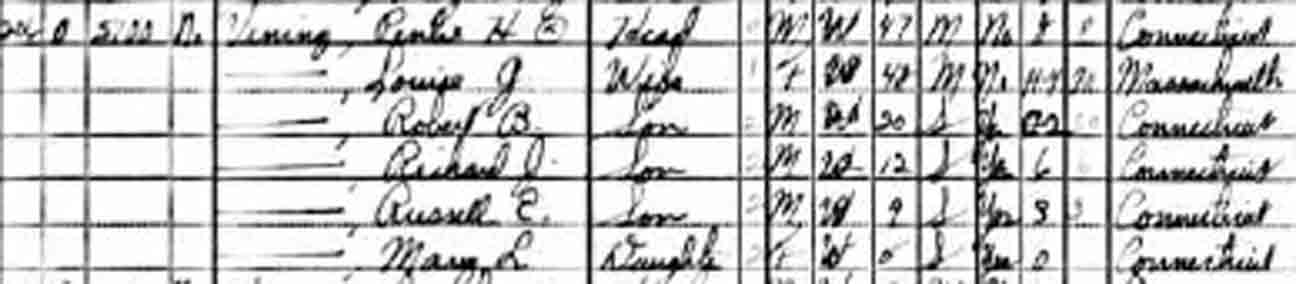 O 5700 No Vining, H E Head M W 47 M No 8 Connecticut
Louise J Wife F W 48 M No H-4 Massachusetts
Robert B. Son M W 20 S Yes C-2 Connecticut
Richard J. Son M W 12 S Yes 6 Connecticut
Russell E. Son M W 9 S Yes 3 Connecticut
Mary L Daughter F W 5 S 0 Connecticut